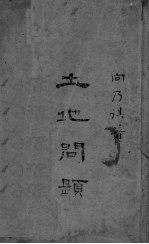 土地問題
向乃祺著